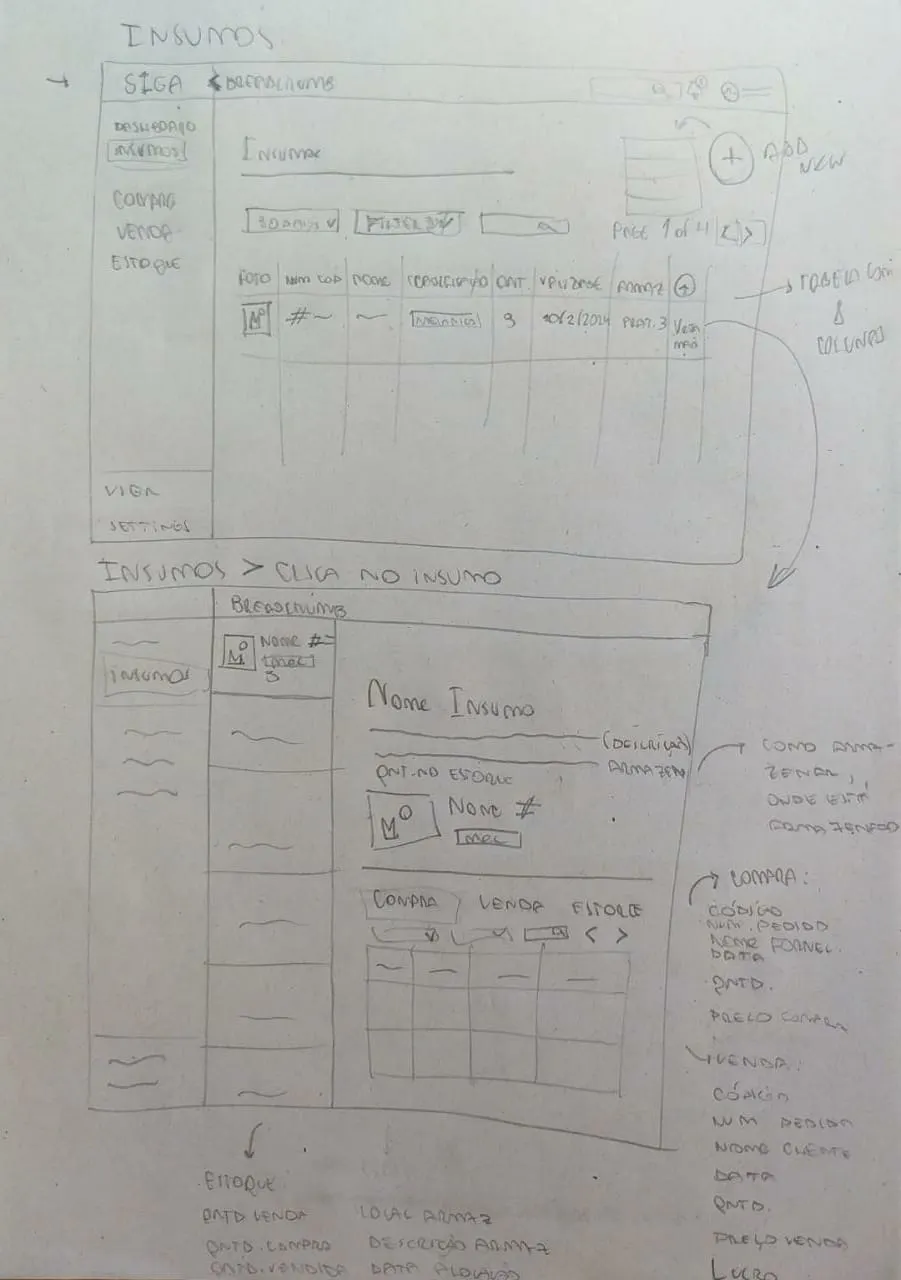 INSUMOS
SIGA < BREADCRUMB
DASHBOARD
INSUMOS
COMPRA
VENDA
ESTOQUE
Insumos
+ ADD NEW
30 DAYS FILTER BY
PAGE 1 of 4 < >
FOTO NUM COD NOME QNT. VALIDADE ARMAZ
# 3 10/2/2024 PRAT. 3 VER MAIS
TABELA COM
8
COLUNAS
VIEW
SETTINGS
INSUMOS > CLICA NO INSUMO
BREADCRUMB
NOME #
mec
3
INSUMOS
Nome Insumo
(DESCRIÇÃO)
ARMAZEM
QNT. NO ESTOQUE
NOME #
mec
COMO ARMA-
ZENAR,
ONDE ESTÁ
ARMAZENADO
COMPRA VENDA ESTOQUE
< >
COMPRA:
CÓDIGO
NUM. PEDIDO
NOME FORNEC.
DATA
QNTD.
PREÇO COMPRA
VENDA:
CÓDIGO
NUM PEDIDO
NOME CLIENTE
DATA
QNTD.
PREÇO VENDA
LUCRO
ESTOQUE
QNTD VENDA LOCAL ARMAZ
QNTD. COMPRA DESCRIÇÃO ARMAZ
QNTD. VENDIDA DATA ALOCAÇÃO